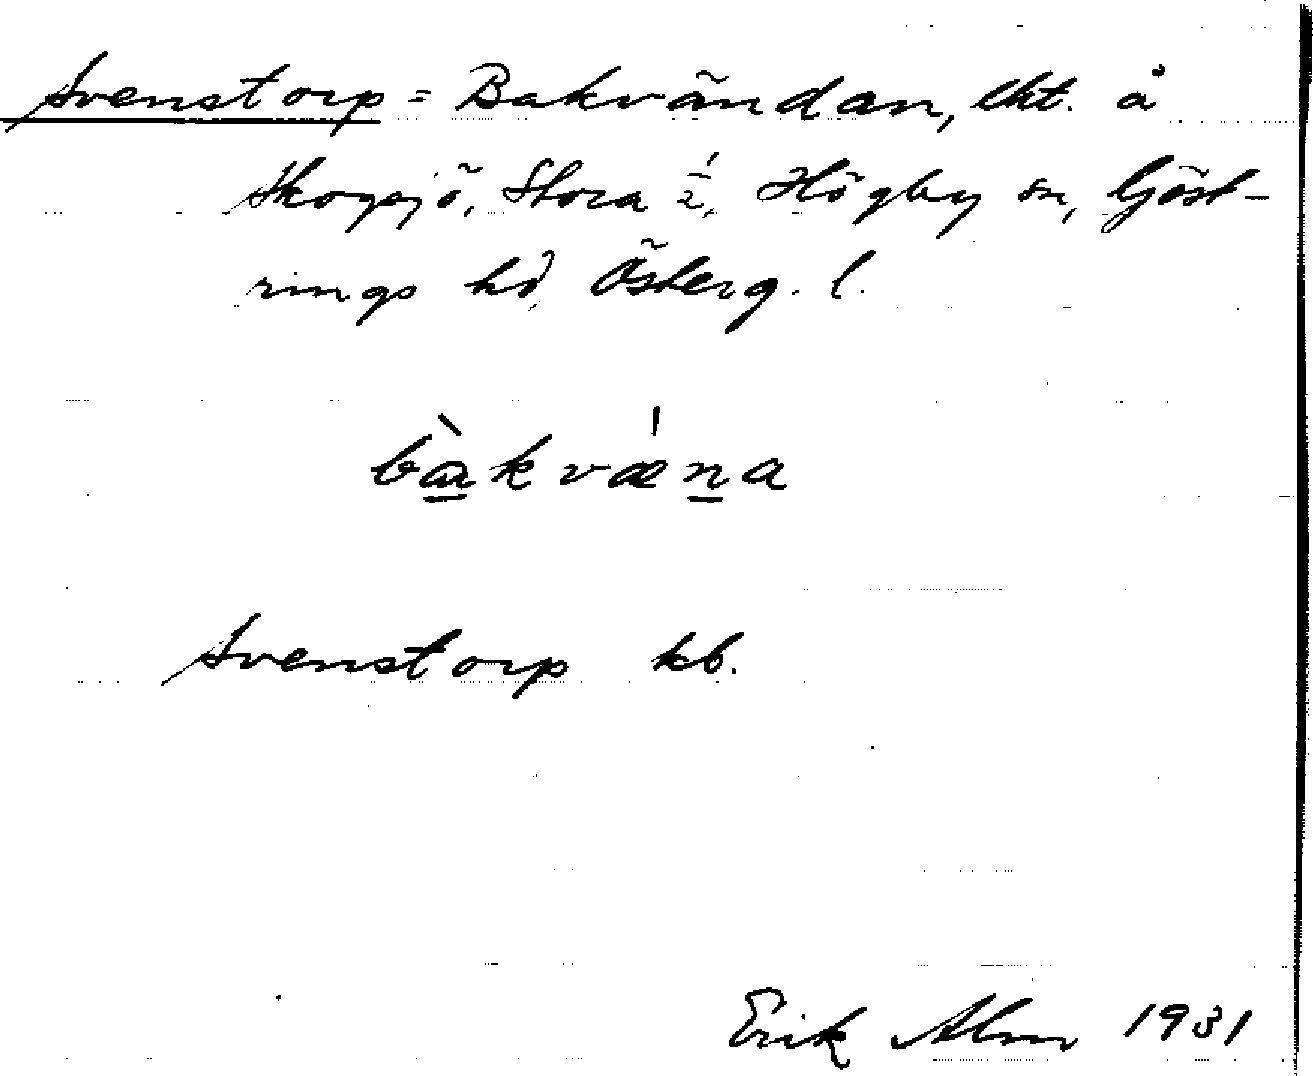 Svenstorp = Bakvändan, lht. å
Skogsjö, Stora 1/2, Högby sn, Göst-
rings hd, Österg. l.
bàkvæ̍na
Svenstorp kb.
Erik Alm 1931